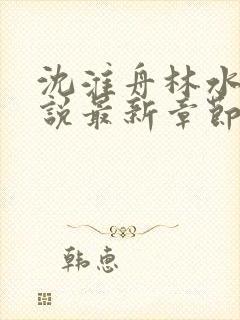 沈淮舟林水
說最新章節
韩惠